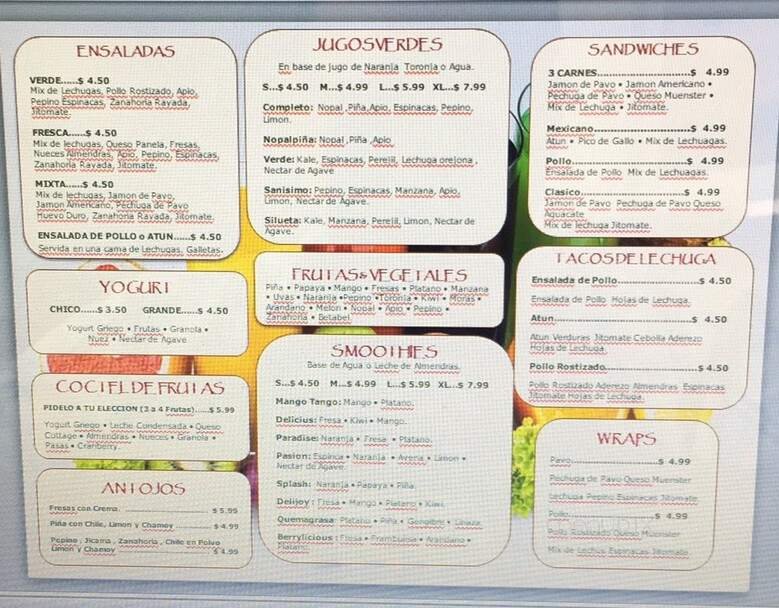 ENSALADAS
VERDE......$ 4.50
Mix de Lechugas, Pollo Rostizado, Apio,
Pepino Espinacas, Zanahoria Rayada,
Jitomate.
FRESCA......$ 4.50
Mix de lechugas, Queso Panela, Fresas,
Nueces Almendras, Apio, Pepino, Espinacas,
Zanahoria Rayada, Jitomate.
MIXTA......$ 4.50
Mix de lechugas, Jamon de Pavo,
Jamon Americano, Pechuga de Pavo
Huevo Duro, Zanahoria Rayada, Jitomate.
ENSALADA DE POLLO o ATUN......$ 4.50
Servida en una cama de Lechugas, Galletas.
YOGURT
CHICO......$ 3.50 GRANDE......$ 4.50
Yogurt Griego • Frutas • Granola •
Nuez • Nectar de Agave
COCTEL DE FRUTAS
PIDELO A TU ELECCION (3 a 4 Frutas)......$ 5.99
Yogurt Griego • Leche Condensada • Queso
Cottage • Almendras • Nueces • Granola •
Pasas • Cranberry.
ANTOJOS
Fresas con Crema. $ 5.99
Piña con Chile, Limon y Chamoy $ 4.99
Pepino, Jicama, Zanahoria, Chile en Polvo
Limon y Chamoy $ 4.99
JUGOS VERDES
En base de jugo de Naranja Toronja o Agua.
S...$ 4.50 M...$ 4.99 L...$ 5.99 XL...$ 7.99
Completo: Nopal ,Piña,Apio, Espinacas, Pepino,
Limon.
Nopalpiña: Nopal ,Piña ,Apio
Verde: Kale, Espinacas, Perejil, Lechuga orejona ,
Nectar de Agave
Sanisimo: Pepino, Espinacas, Manzana, Apio,
Limon, Nectar de Agave.
Silueta: Kale, Manzana, Perejil, Limon, Nectar de
Agave.
FRUTAS & VEGETALES
Piña • Papaya • Mango • Fresas • Platano • Manzana
• Uvas • Naranja •Pepino •Toronja • Kiwi • Moras •
Arandano • Melon • Nopal • Apio • Pepino •
Zanahoria • Betabel
SMOOTHIES
Base de Agua o Leche de Almendras.
S...$ 4.50 M...$ 4.99 L...$ 5.99 XL...$ 7.99
Mango Tango: Mango • Platano.
Delicius: Fresa • Kiwi • Mango.
Paradise: Naranja • Fresa • Platano.
Pasion: Espinca • Naranja • Avena • Limon •
Nectar de Agave.
Splash: Naranja • Papaya • Piña.
Delijoy : Fresa • Mango • Platano • Kiwi.
Quemagrasa: Platano • Piña • Gengibre • Linaza.
Berrylicious : Fresa • Frambuesa • Arandano •
Platano.
SANDWICHES
3 CARNES............................$ 4.99
Jamon de Pavo • Jamon Americano •
Pechuga de Pavo • Queso Muenster •
Mix de Lechuga • Jitomate.
Mexicano............................$ 4.99
Atun • Pico de Gallo • Mix de Lechuagas.
Pollo............................$ 4.99
Ensalada de Pollo Mix de Lechuagas.
Clasico............................$ 4.99
Jamon de Pavo Pechuga de Pavo Queso
Aguacate
Mix de lechuga Jitomate.
TACOS DE LECHUGA
Ensalada de Pollo............................$ 4.50
Ensalada de Pollo Hojas de Lechuga.
Atun............................$ 4.50
Atun Verduras Jitomate Cebolla Aderezo
Hojas de Lechuga.
Pollo Rostizado............................$ 4.50
Pollo Rostizado Aderezo Almendras Espinacas
Jitomate Hojas de Lechuga.
WRAPS
Pavo............................$ 4.99
Pechuga de Pavo Queso Muenster
Lechuga Pepino Espinacas Jitomate.
Pollo............................$ 4.99
Pollo Rostizado Queso Muenster
Mix de Lechus Espinacas Jitomate.